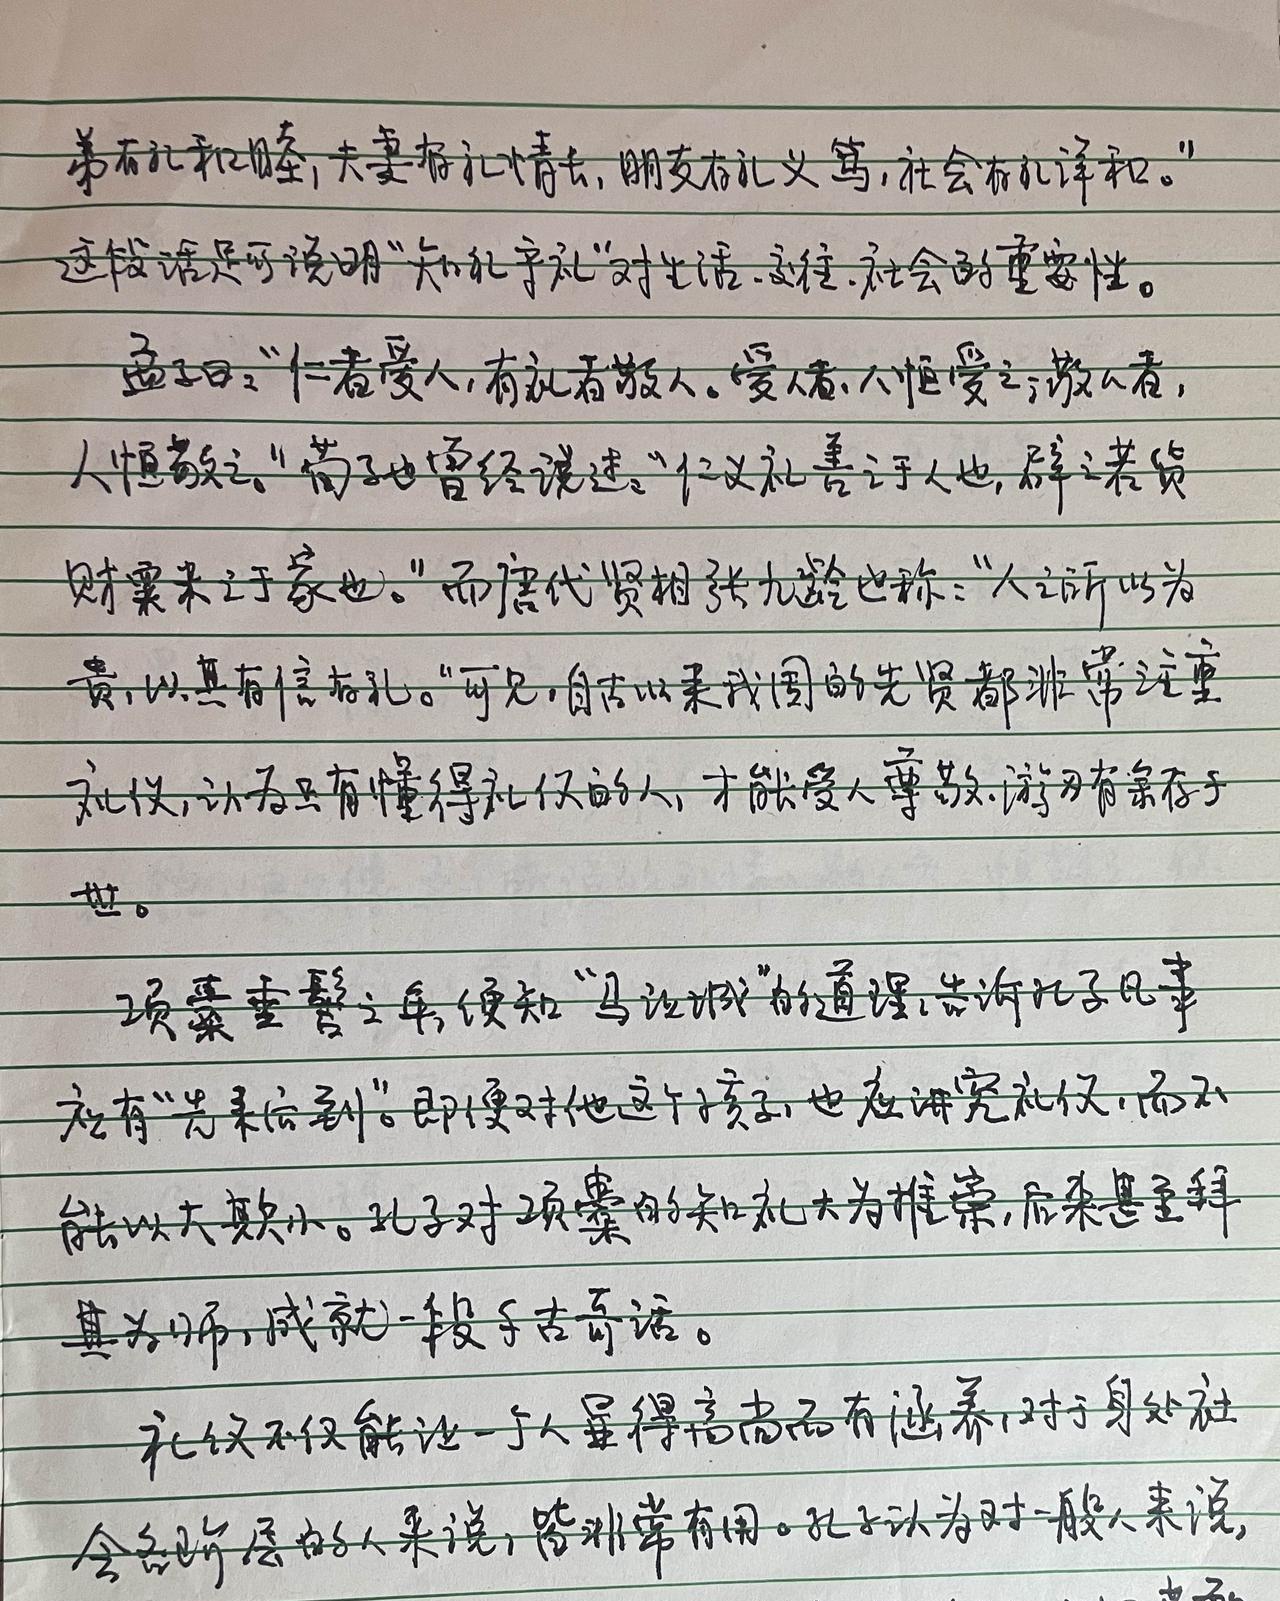 弟有礼和睦,夫妻有礼情长,朋友有礼义笃,社会有礼祥和。”
这段话足可说明“知礼守礼”对生活、交往、社会的重要性。
孟子曰:“仁者爱人,有礼者敬人。爱人者,人恒爱之;敬人者,
人恒敬之。”荀子也曾经说过:“仁义礼善之于人也,辟之若货
财粟米之于家也。”而唐代贤相张九龄也称:“人之所以为
贵,以其有信有礼。”可见,自古以来我国的先贤都非常注重
礼仪,认为只有懂得礼仪的人,才能受人尊敬、游刃有余存于
世。
项橐垂髫之年,便知“马让城”的道理,告诉孔子凡事
应有“先来后到”。即便对他这个孩子,也应讲究礼仪,而不
能以大欺小。孔子对项橐的知礼大为推崇,后来甚至拜
其为师,成就一段千古奇话。
礼仪不仅能让一个人显得高尚而有涵养,对于身处社
会各阶层的人来说,皆非常有用。孔子认为对一般人来说,